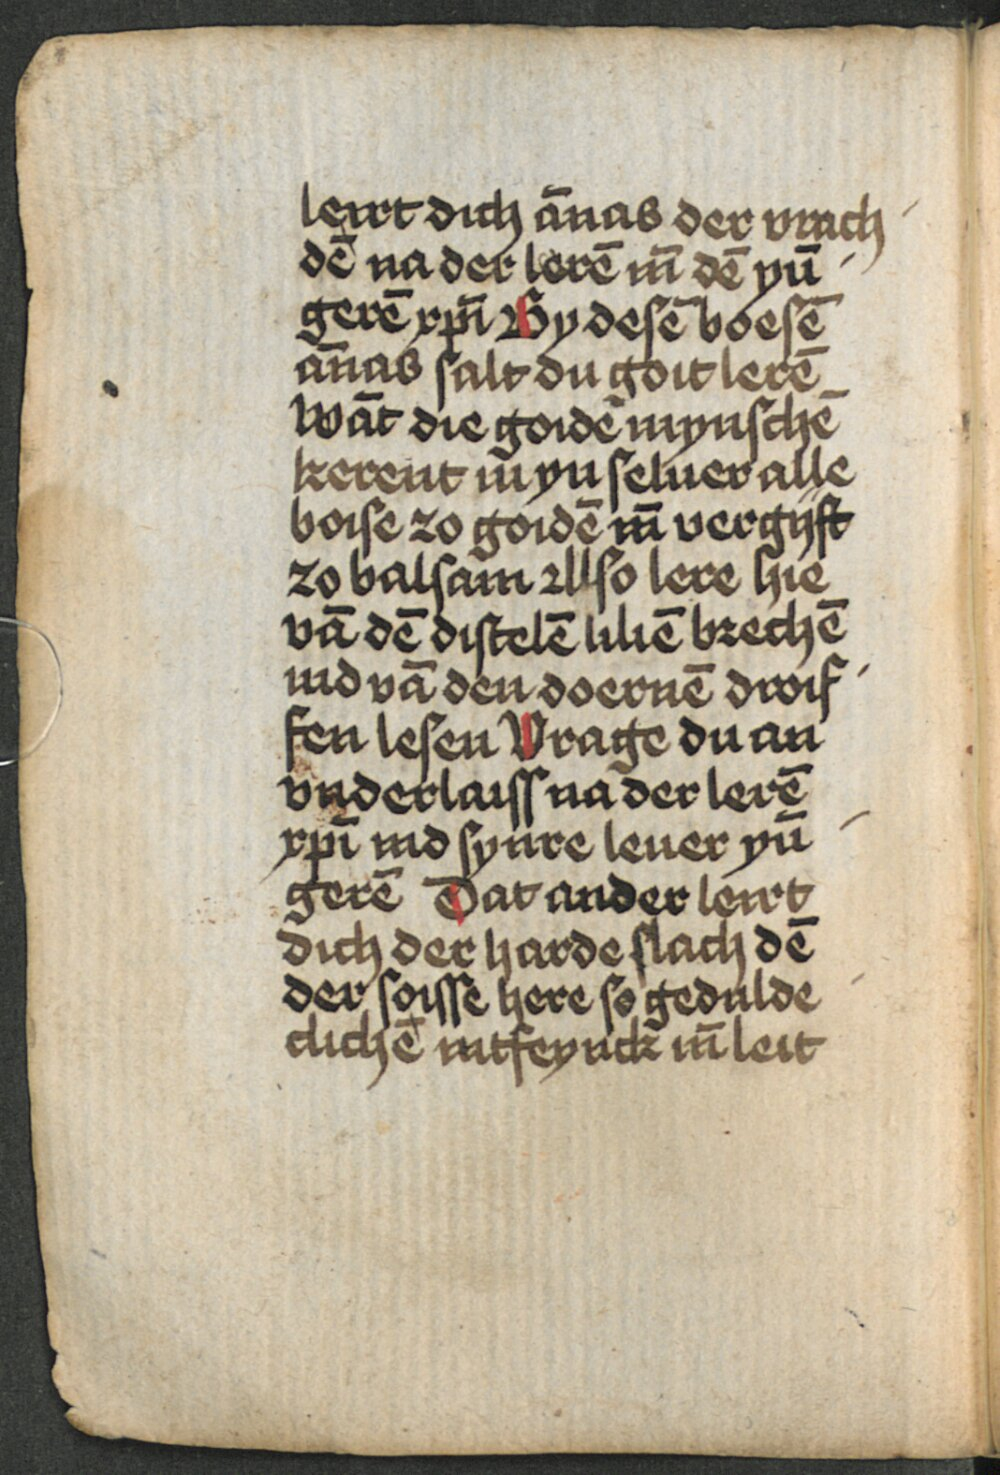 leirt dich ānas der vrach /
dē na der lerē in̄ dē yū /
gerē xp̄i By desē boesē
ān̄as salt du goit lerē
Wāt die goidē mynschē
kerent in yn seluer alle
boise zo goidē in̄ vergijft
zo balsam Also lere hie
vā dē distelē liliē brechē
ind vā den doernē droif /
fen lesen Vrage du an
vnderlaiss na der lerē
xp̄i ind synre leuer yū /
gerē Dat ander leirt
dich der harde slach dē
der soisse here so gedulde /
clichē intfeynck in̄ leit